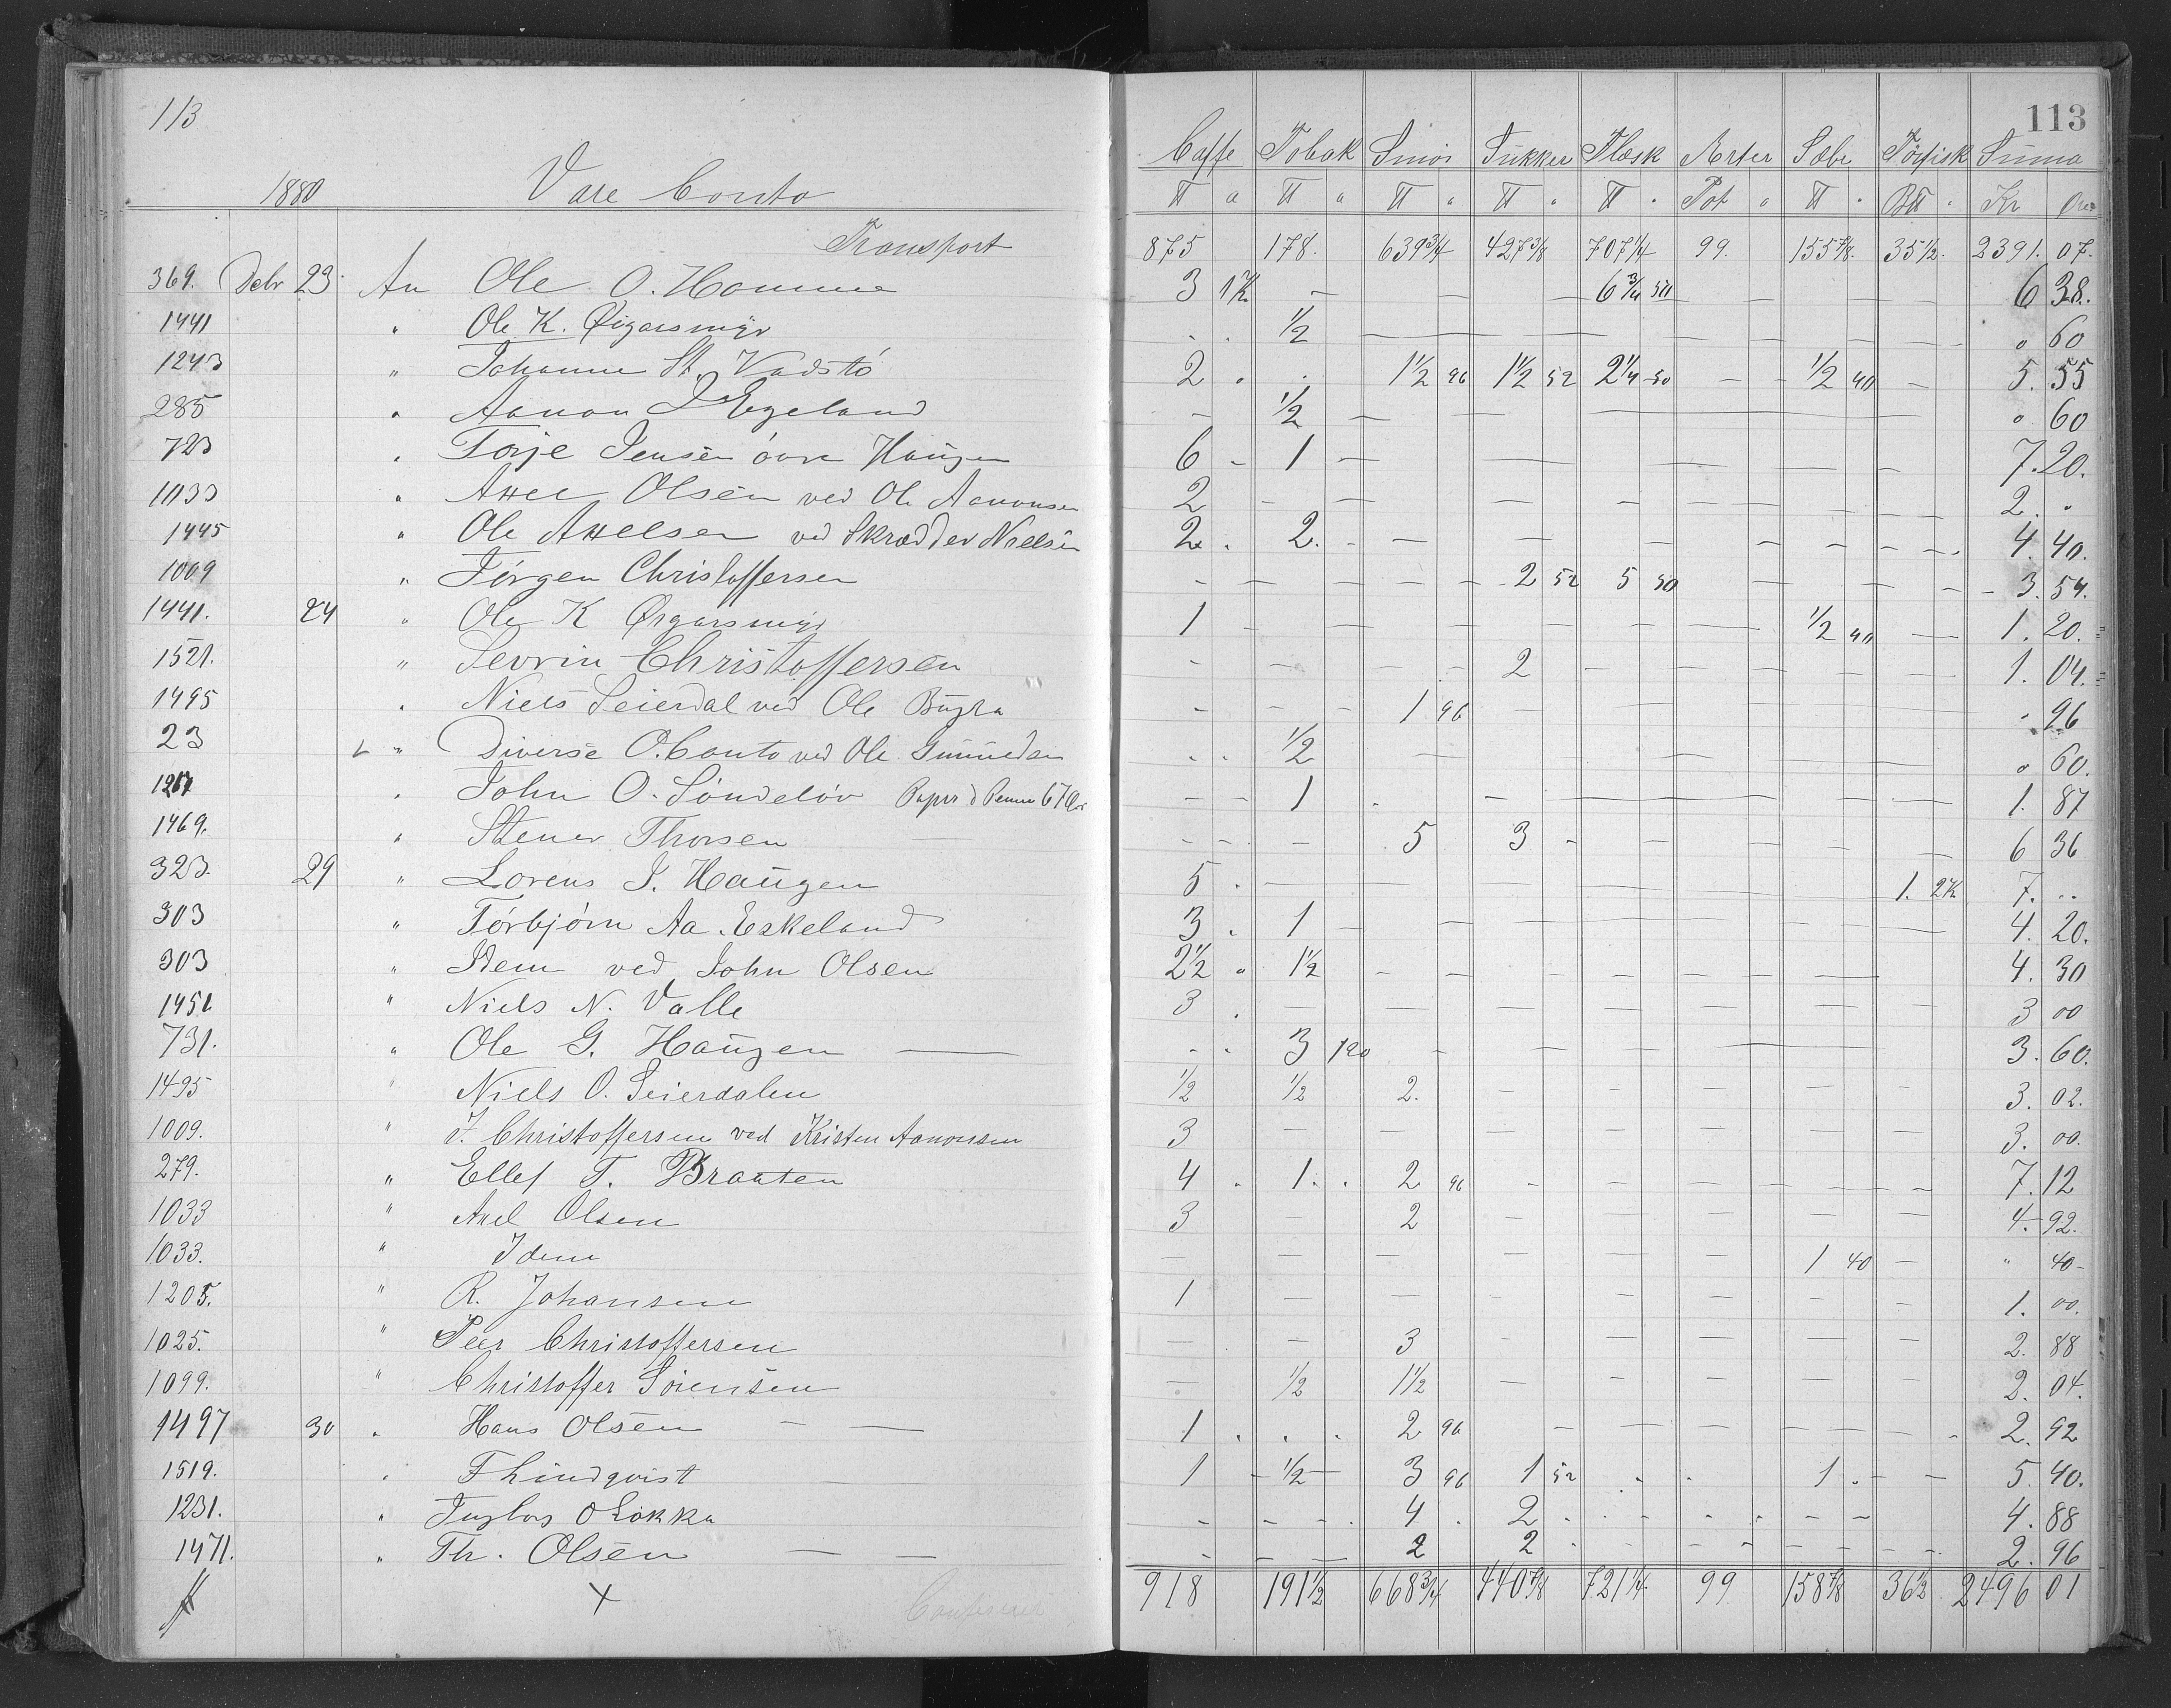 113
113
1880 Vare Conto Caffe Tobak Smør Sukker Flæsk Erter Sæbe Tørfisk Suma
℔ ℔ ℔ ℔ ℔ Pot ℔ B℔ Kr Øre
Transport 875 178. 639 3/4 427 3/8 707 1/4 99. 155 7/8. 35 1/2. 2391. 07.
369. Debr 23. An Ole O. Homme 3 1K — — — 6 3/4 50 — — — 6 38.
1441 " Ole K. Øigarsmyr 1/2 — " 60
1243 " Johanne St. Vadstö 2 " 1 1/2 96 1 1/2 52 2 1/4 50 — 1/2 40 — 5. 55
285 " Aanon J Egeland — 1/2 — " 60
723 " Torje Jensen övre Haugen 6 - 1 — 7. 20.
1033 " Axel Olsen ved Ole Aanonsen 2 — 2. "
1445 " Ole Axelsen ved Skrædder Nielsen 2. 2. — 4. 40.
1009 " Jörgen Christoffersen — 2 52 5 50 — 3. 54.
1441. 24 " Ole K Øigarsmyr 1 — 1/2 40 — 1. 20.
1521. " Sevrin Christoffersen — 2 — 1. 04.
1495 " Niels Seierdal ved Ole Bugta — 1 96 — " 96
23 " Diverse O. Conto ved Ole Gunnedan 1/2 — " 60.
1267 " John O. Söndelöv Papir & Penne 67 Øre — 1 — 1. 87
1469. " Stener Thorsen — 5 3 — 6 36
323. 29 " Lorens J. Haugen 5 — 1. 2K 7. ..
303 " Torbjörn Aa. Eskeland 3. 1 — 4. 20.
303 " Idem ved John Olsen 2 1/2 " 1 1/2 — 4. 30
1451 " Niels N. Valle 3 . — 3 00
731. " Ole G. Haugen — 3 120 — 3. 60.
1495 " Niels O. Seierdalen 1/2 1/2 2. — 3. 02.
1009. " J. Christoffersen ved Kristen Aanonsen 3 — 3. 00.
279. " Ellef T. Braaten 4 . 1. . 2 96 — 7. 12
1033 " Axel Olsen 3 — 2 — 4. 92.
1033. " Idem — 1 40 — " 40-
1205. " R. Johansen 1 — 1. 00.
1025. " Peer Christoffersen — 3 — 2. 88
1099. " Christoffer Sörensen — 1/2 1 1/2 — 2. 04.
1497 30 " Hans Olsen — — 1 . . . 2 96 — 2. 92
1519. " Th Lindqvist — 1 - 1/2 — 3 96 1 52 . . 1. — 5. 40.
1231. " O Løkka — 4 . 2 — 4. 88
1471. " Th. Olsen — — 2 2 — 2. 96
X 918 191 1/2 668 3/4 440 7/8 721 1/4 99 158 7/8 36 1/2 2496 01